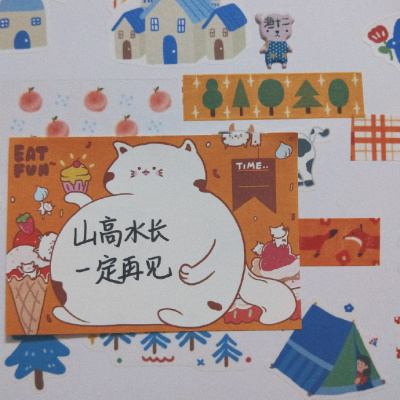 EAT
FUN~
TIME..
山高水长
一定再见